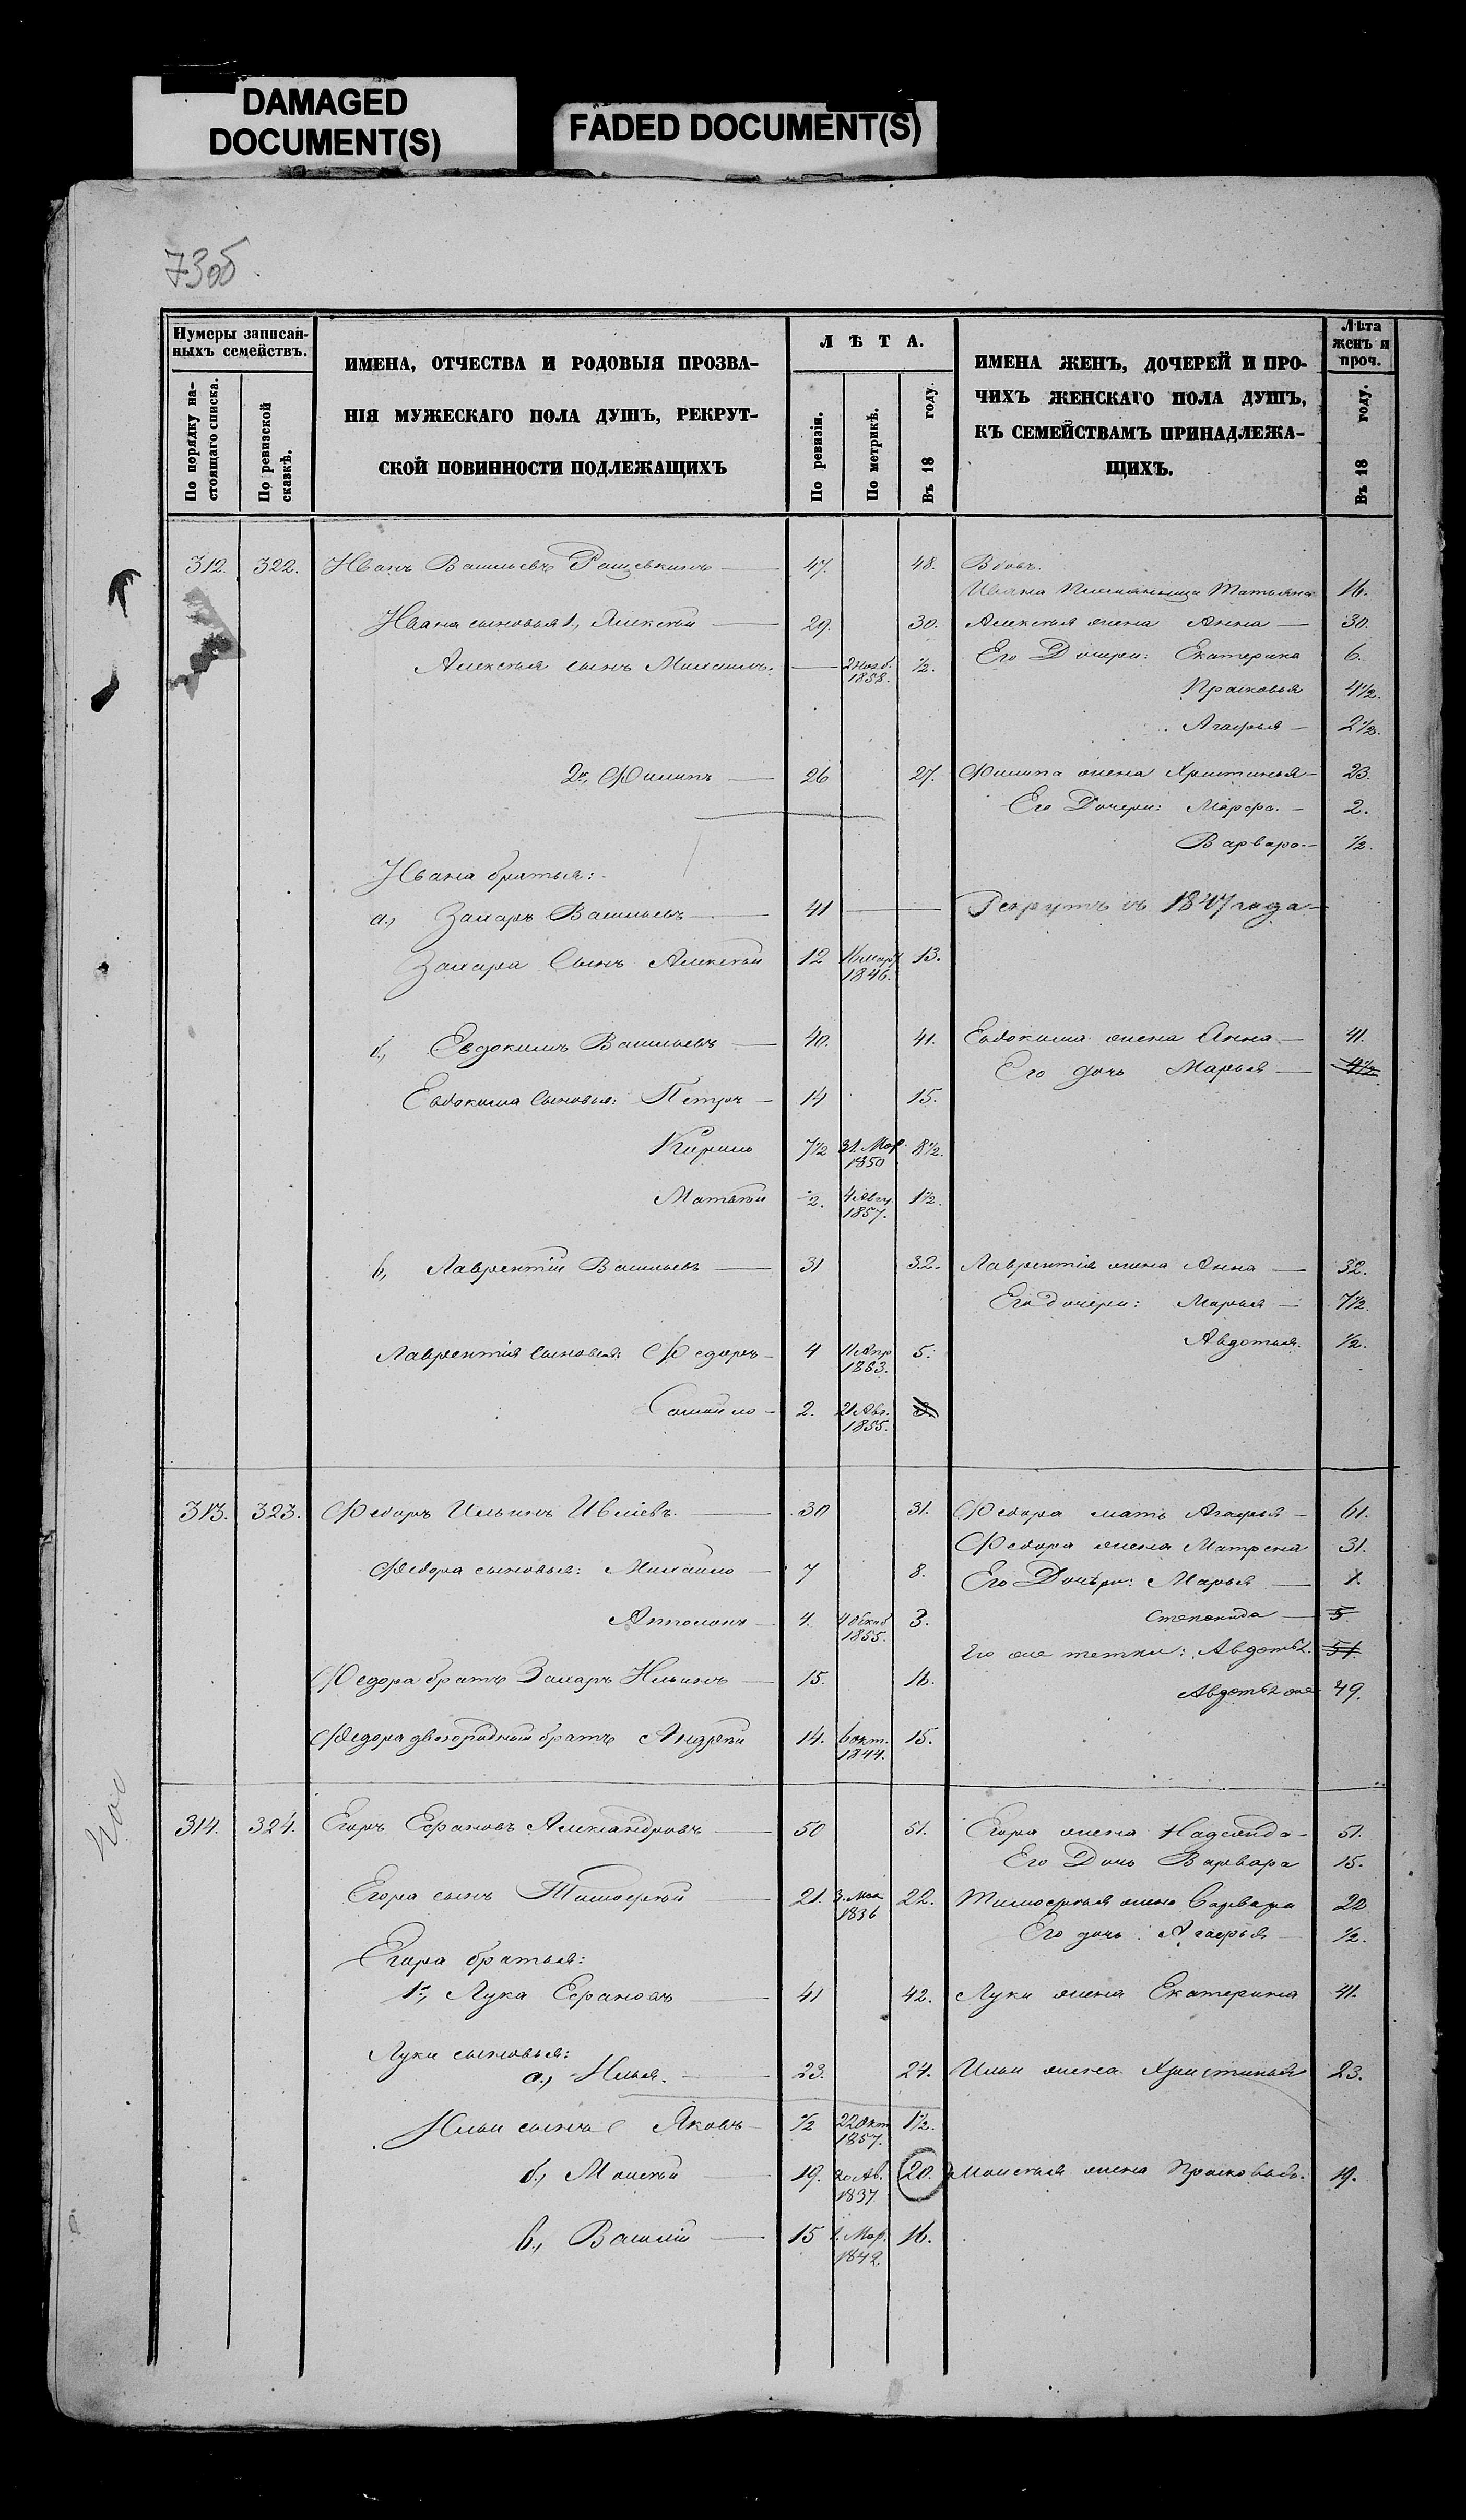 DAMAGED
DOCUMENT(S)
FADED DOCUMENT(S)
73об
Нумеры записан-
ныхъ семействъ.
По порядку на-
стоящаго списка.
По ревизской
сказкѣ.
ИМЕНА, ОТЧЕСТВА И РОДОВЫЯ ПРОЗВА-
НІЯ МУЖЕСКАГО ПОЛА ДУШЪ, РЕКРУТ-
СКОЙ ПОВИННОСТИ ПОДЛЕЖАЩИХЪ
ЛѢТА.
По ревизіи.
По метрикѣ.
Въ 18 году.
ИМЕНА ЖЕНЪ, ДОЧЕРЕЙ И ПРО-
ЧИХЪ ЖЕНСКАГО ПОЛА ДУШЪ,
КЪ СЕМЕЙСТВАМЪ ПРИНАДЛЕЖА-
ЩИХЪ.
Лѣта
женъ и
проч.
Въ 18 году.
312. 322. Иванъ Васильевъ 47. 48. Вдовъ.
Ивана племянница Татьяна 16.
Ивана сыновья 1, Алексѣй 29. 30. Алексѣя жена Анна 30.
Алексѣя сынъ Михаилъ. 2 нояб. 1858. ½. Его Дочери: Екатерина 6.
Прасковья 4½.
Агафья 2½.
2е, Филипъ 26 27. Филипа жена Христинья 23.
Его Дочери: Марфа. 2.
Варвара. ½.
Ивана братья:
а., Захаръ Васильевъ 41 Рекрутъ съ 1847 года
Захара Сынъ Алексѣй 12 1846. 13.
б., Евдокимъ Васильевъ 40. 41. Евдокима жена Анна 41.
Его дочь Марья 4½.
Евдокима Сыновья: Петръ 14 15.
Кирило 7½ 31. Мар. 1850 8½.
Матвѣй ½. 4 Авгу. 1857. 1½.
в, Лаврентій Васильевъ 31 32. Лаврентія жена Анна 32.
Его дочери: Марья 7½.
Авдотья. ½.
Лаврентія Сыновья: Федоръ 4 11 Апр 1853. 5.
Самойло 2. 21 Авг. 1855. 3.
313. 323. Федоръ Ильинъ Ивлiевъ. 30 31. Федора мать Агафья 61.
Федора жена Матрена 31.
Федора сыновья: Михайло 7 8. Его Дочьри: Марья 1.
Степанида 5
Антонъ 4. 1855. 3.
Его же тетки: Авдотья. 51.
Федора братъ Захаръ Ильинъ 15. 16.
Авдотья же 49.
Федора двоюродный братъ Андрей 14. 6 окт. 1844. 15.
314. 324. Егоръ Ефановъ Александровъ 50 51. Егора жена Надежда 51.
Его Дочь Варвара 15.
Егора сынъ Тимофѣй 21. 3. Мая 1836 22. Тимофѣя жена Варвара 22
Его дочь: Агафья ½.
Егора братья:
1е, Лука Ефановъ 41 42. Луки жена Екатерина 41.
Луки сыновья:
а., Илья. 23. 24. Ильи жена Христинья 23.
Ильи сынъ Яковъ ½ 22 Окт 1857. 1½.
б., Моисѣй 19. 20 Ав. 1837 20. Моисѣя жена Прасковья. 19.
в., Василій 15 1. Мар. 1842. 16.